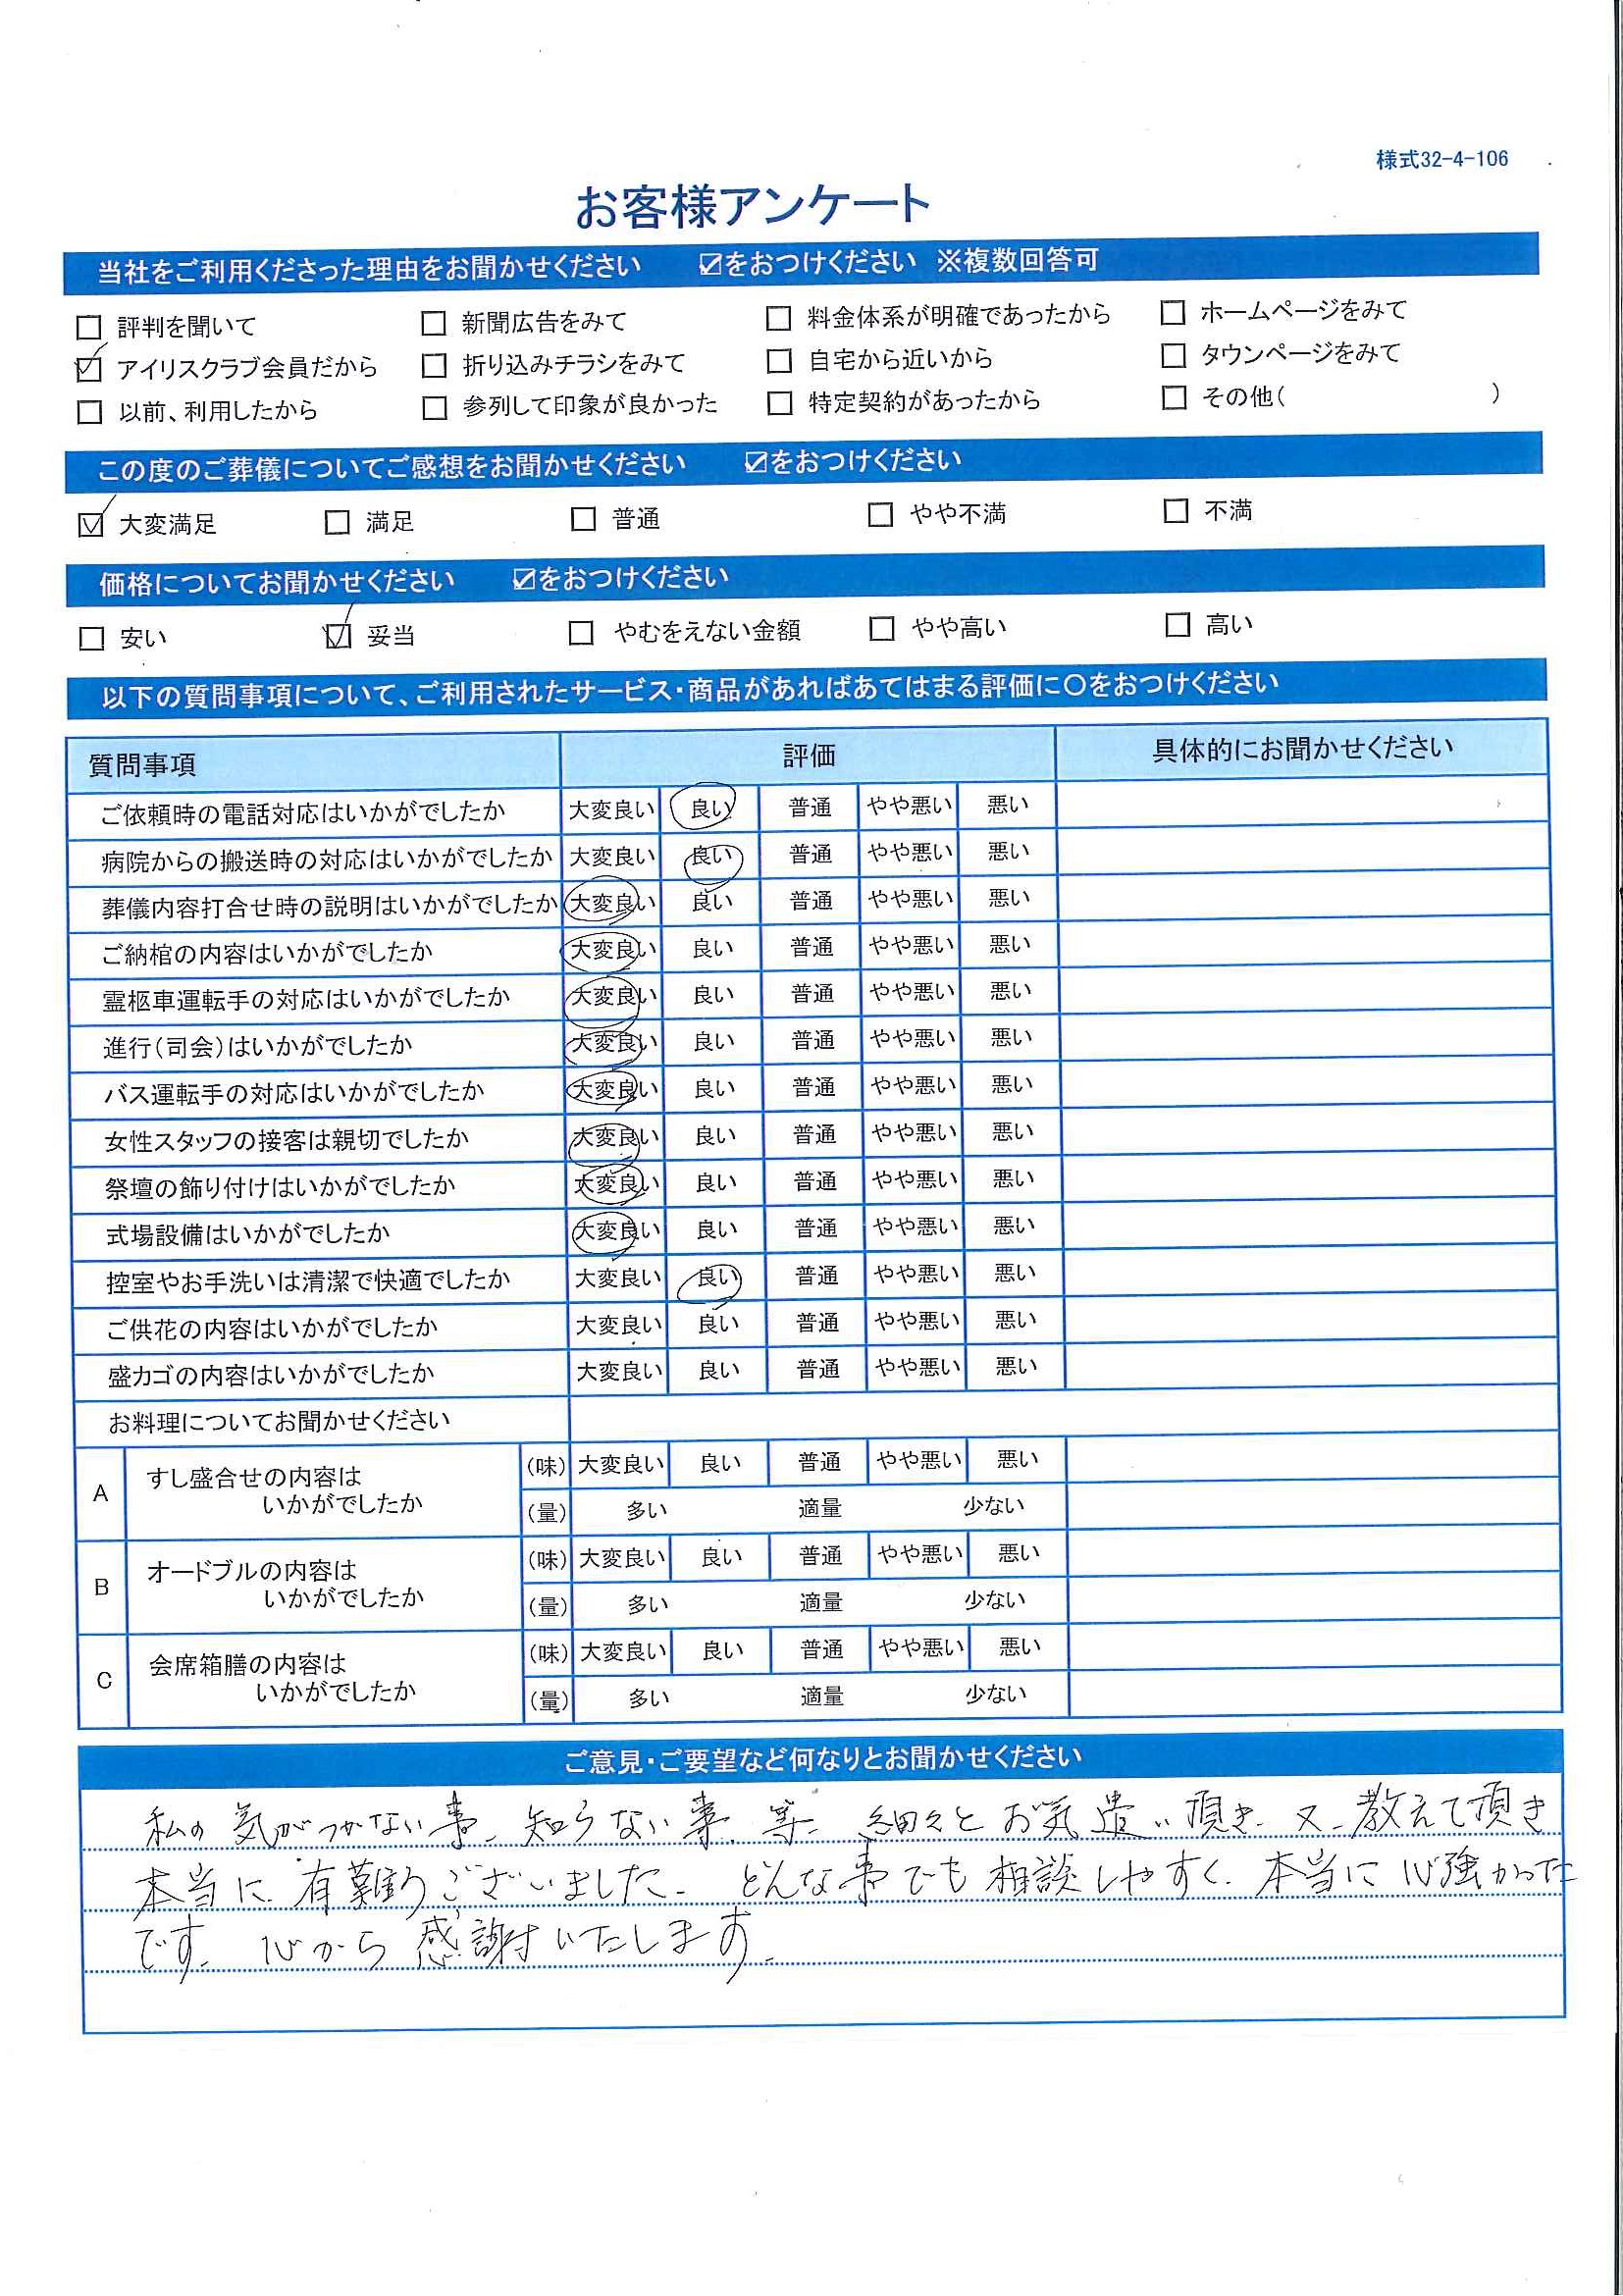 様式32-4-106
お客様アンケート
当社をご利用くださった理由をお聞かせください ☑をおつけください ※複数回答可
☐ 評判を聞いて ☐ 新聞広告をみて ☐ 料金体系が明確であったから ☐ ホームページをみて
☑ アイリスクラブ会員だから ☐ 折り込みチラシをみて ☐ 自宅から近いから ☐ タウンページをみて
☐ 以前、利用したから ☐ 参列して印象が良かった ☐ 特定契約があったから ☐ その他( )
この度のご葬儀についてご感想をお聞かせください ☑をおつけください
☑ 大変満足 ☐ 満足 ☐ 普通 ☐ やや不満 ☐ 不満
価格についてお聞かせください ☑をおつけください
☐ 安い ☑ 妥当 ☐ やむをえない金額 ☐ やや高い ☐ 高い
以下の質問事項について、ご利用されたサービス・商品があればあてはまる評価に○をおつけください
質問事項 評価 具体的にお聞かせください
ご依頼時の電話対応はいかがでしたか 大変良い 良い 普通 やや悪い 悪い
病院からの搬送時の対応はいかがでしたか 大変良い 良い 普通 やや悪い 悪い
葬儀内容打合せ時の説明はいかがでしたか 大変良い 良い 普通 やや悪い 悪い
ご納棺の内容はいかがでしたか 大変良い 良い 普通 やや悪い 悪い
霊柩車運転手の対応はいかがでしたか 大変良い 良い 普通 やや悪い 悪い
進行(司会)はいかがでしたか 大変良い 良い 普通 やや悪い 悪い
バス運転手の対応はいかがでしたか 大変良い 良い 普通 やや悪い 悪い
女性スタッフの接客は親切でしたか 大変良い 良い 普通 やや悪い 悪い
祭壇の飾り付けはいかがでしたか 大変良い 良い 普通 やや悪い 悪い
式場設備はいかがでしたか 大変良い 良い 普通 やや悪い 悪い
控室やお手洗いは清潔で快適でしたか 大変良い 良い 普通 やや悪い 悪い
ご供花の内容はいかがでしたか 大変良い 良い 普通 やや悪い 悪い
盛カゴの内容はいかがでしたか 大変良い 良い 普通 やや悪い 悪い
お料理についてお聞かせください
A すし盛合せの内容は
いかがでしたか
(味) 大変良い 良い 普通 やや悪い 悪い
(量) 多い 適量 少ない
B オードブルの内容は
いかがでしたか
(味) 大変良い 良い 普通 やや悪い 悪い
(量) 多い 適量 少ない
C 会席箱膳の内容は
いかがでしたか
(味) 大変良い 良い 普通 やや悪い 悪い
(量) 多い 適量 少ない
ご意見・ご要望など何なりとお聞かせください
私の気がつかない事、知らない事、等、細々とお気遣い頂き、又、教えて頂き
本当に、有難うございました。どんな事でも相談しやすく、本当に心強かった
です。心から感謝いたします。